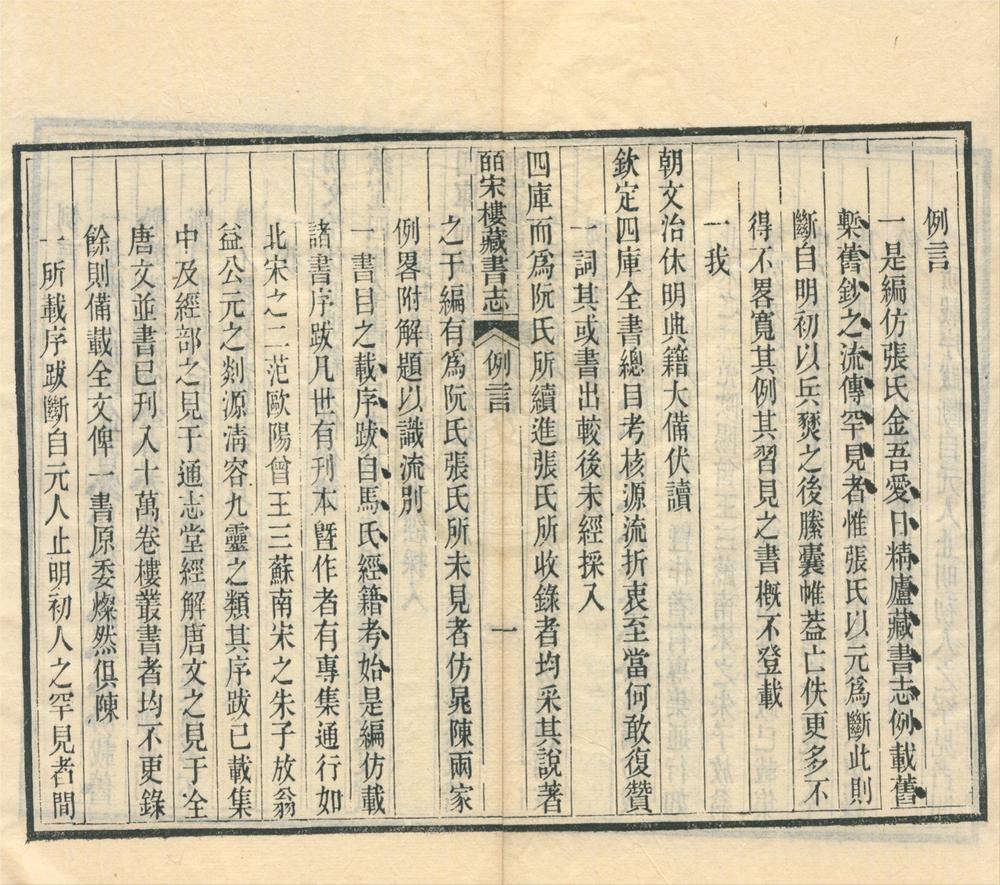 例言
一是編仿張氏金吾愛日精廬藏書志例載舊
槧舊鈔之流傳罕見者惟張氏以元爲斷此則
斷自明初以兵燹之後縢囊帷蓋亡佚更多不
得不畧寬其例其習見之書概不登載
一我
朝文治休明典籍大備伏讀
欽定四庫全書總目考核源流折衷至當何敢復贊
一詞其或書出較後未經採入
四庫而爲阮氏所續進張氏所收錄者均采其說著
皕宋樓藏書志 例言 一
之于編有爲阮氏張氏所未見者仿晁陳兩家
例畧附解題以識流別
一書目之載序跋自馬氏經籍考始是編仿載
諸書序跋凡世有刊本暨作者有專集通行如
北宋之二范歐陽曾王三蘇南宋之朱子放翁
益公元之剡源淸容九靈之類其序跋已載集
中及經部之見于通志堂經解唐文之見于全
唐文並書已刊入十萬卷樓叢書者均不更錄
餘則備載全文俾一書原委燦然俱陳
一所載序跋斷自元人止明初人之罕見者間